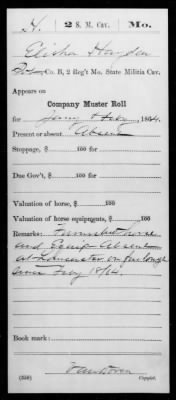 H. 2 S. M. Cav. Mo.
Elisha Hayden
Co. B, 2 Reg't Mo. State Militia Cav.
Appears on
Company Muster Roll
for Jany & Feby, 1864.
Present or absent Absent
Stoppage, $ 100 for
Due Gov't, $ 100 for
Valuation of horse, $ 100
Valuation of horse equipments, $ 100
Remarks: Furnished horse
and Equip Absent
at Lancaster on furlough
since Feby 18/64.
Book mark:
Copyist.